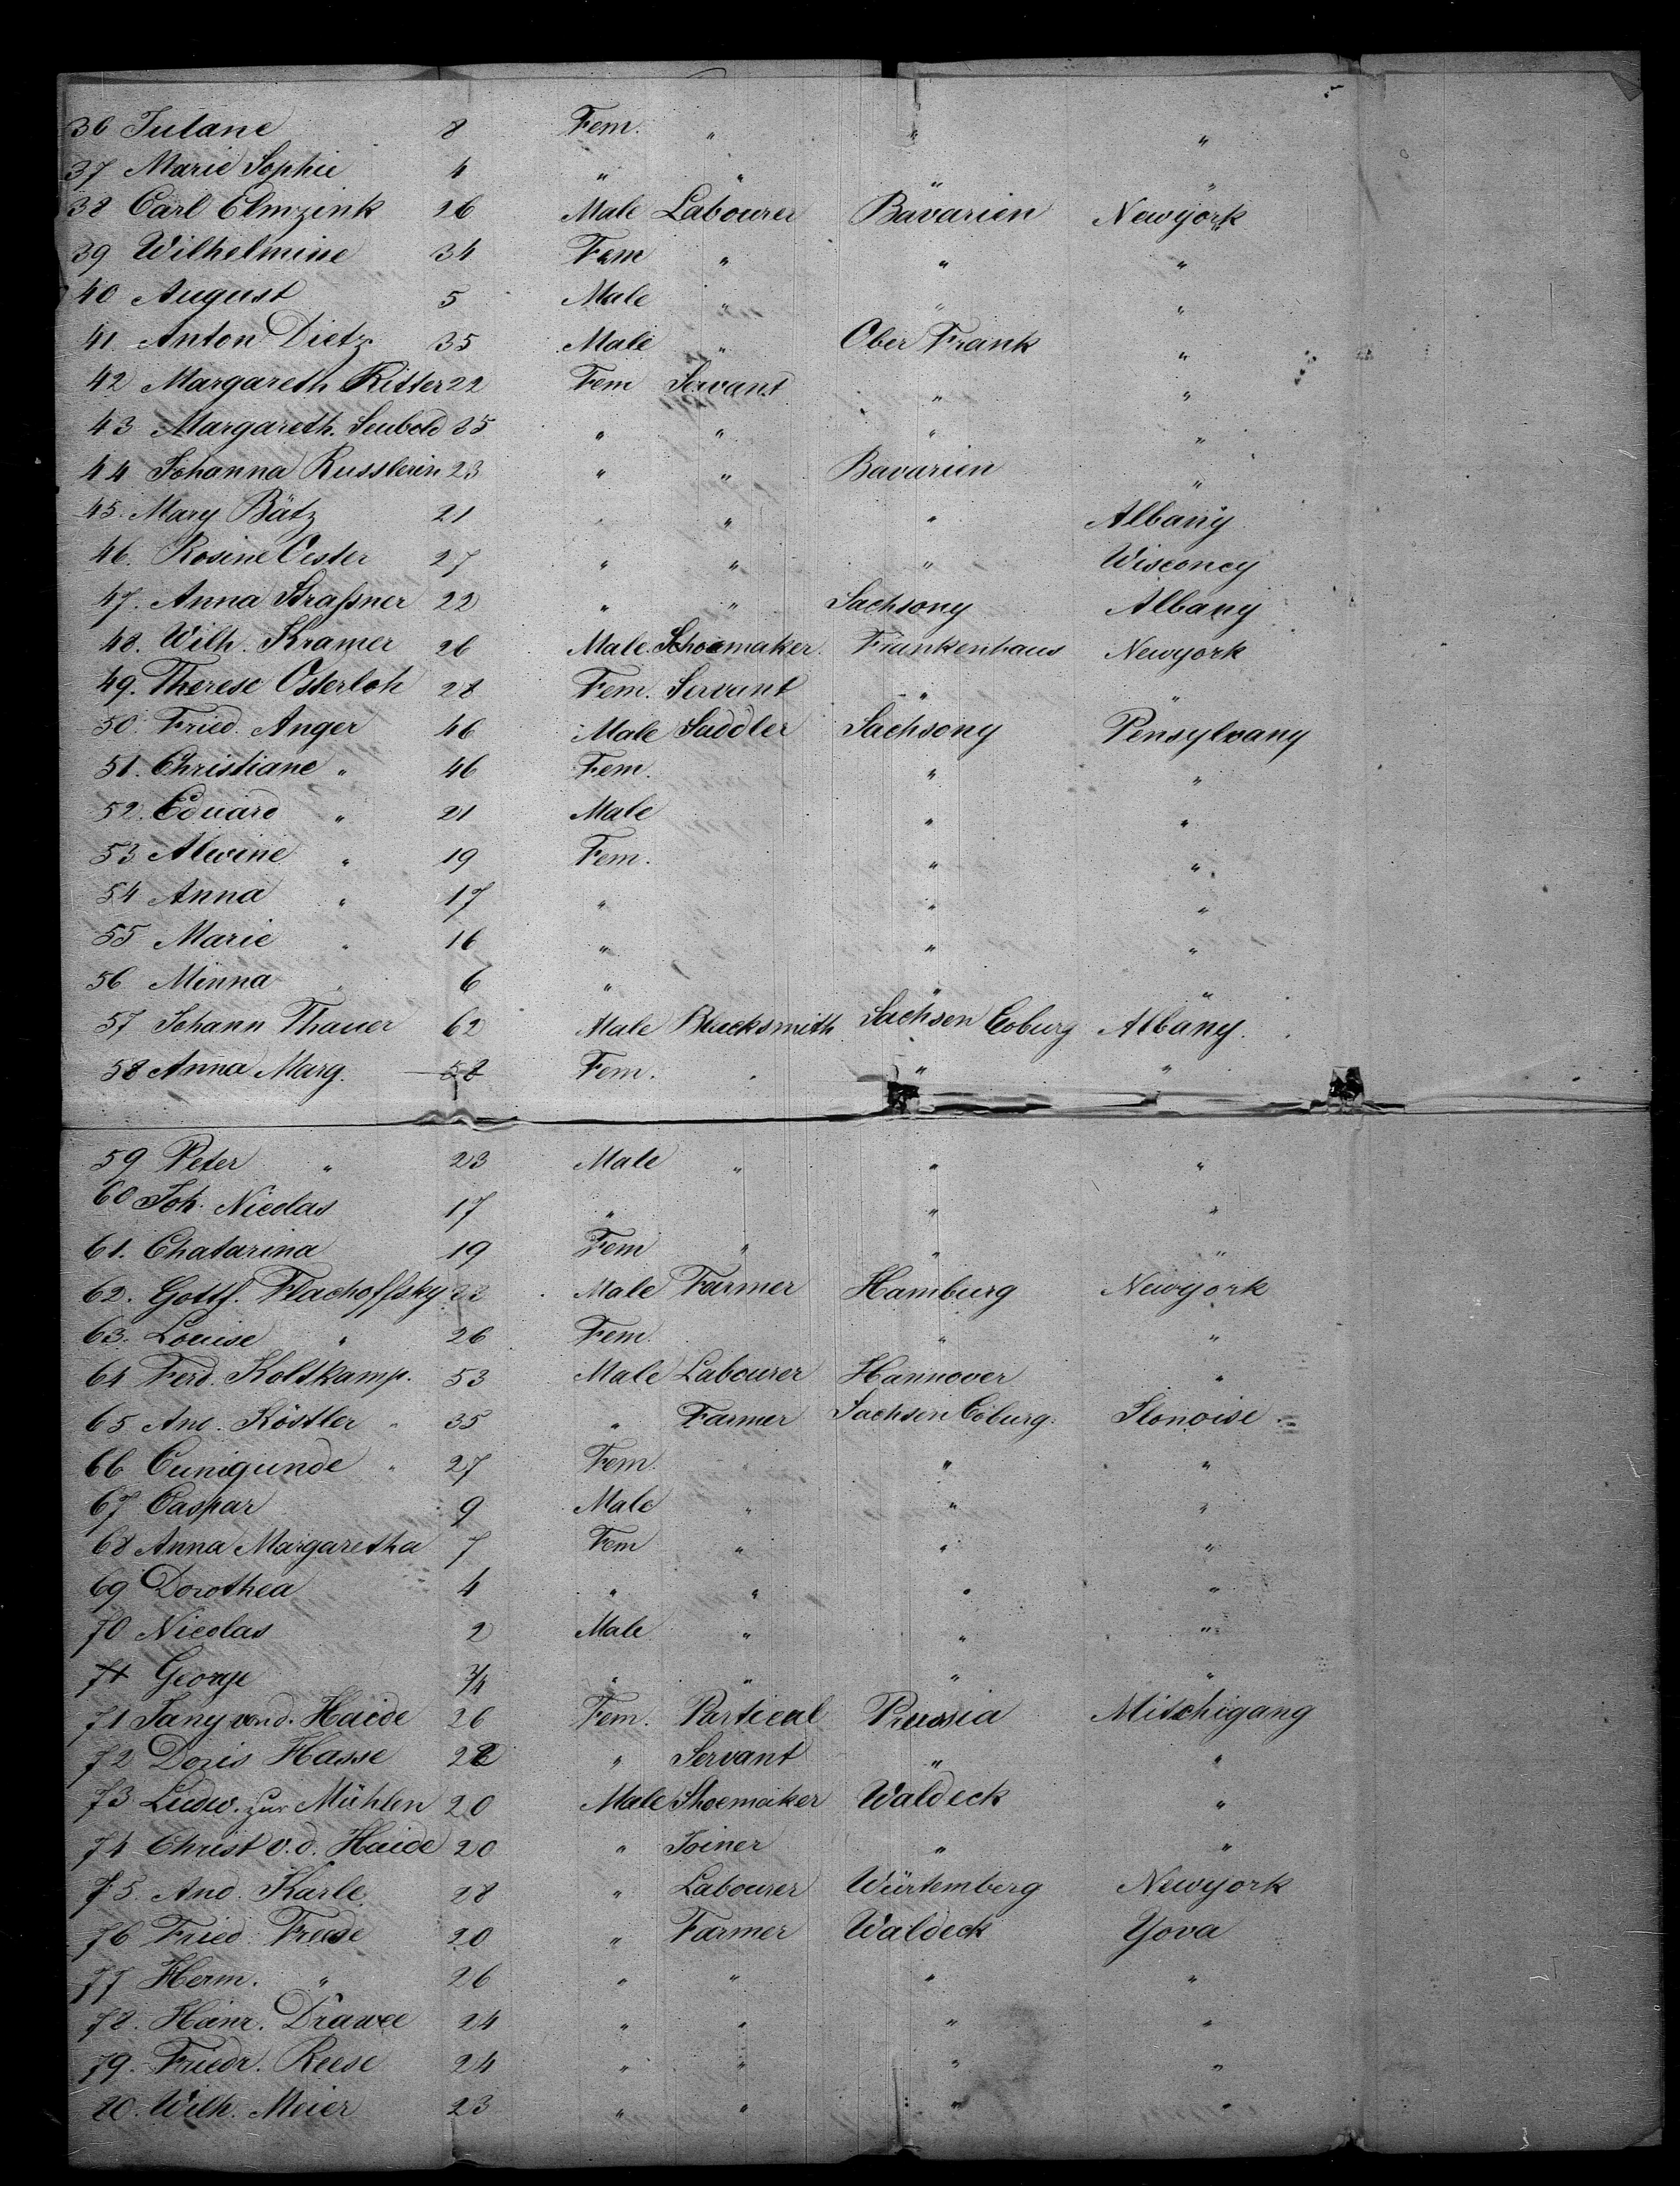 36 Juliane 8 Fem. " " "
37 Marie Sophie 4 " " " "
38 Carl Elmzink 26 Male Labourer Bavarien Newyork
39 Wilhelmine 34 Fem " " "
40 August 5 Male " " "
41 Anton Dietz 35 Male " Ober Frank "
42 Margareth Ritter 22 Fem Servant " "
43 Margareth. Seubold 35 " " " "
44 Johanna Russlerin 23 " " Bavarien "
45. Mary Bätz 21 " " " Albany
46. Rosine Oester 27 " " " Wisconcy
47. Anna Straßner 22 " " Sachsony Albany
48. Wilh. Kramer 26 Male. Schoemaker. Frankenhaus Newyork
49. Therese Osterloh 28 Fem. Servant " "
50. Fried. Anger 46 Male Saddler Sachsony Pensylvany
51. Christiane " 46 Fem. " "
52. Eduard " 21 Male " "
53 Alwine " 19 Fem. " "
54 Anna " 17 " " "
55 Marie " 16 " " "
56 Minna " 6 " " "
57 Johann Thauer 62 Male Blacksmith Sachsen Coburg Albany.
58 Anna Marg. 58 Fem. " " "
59 Peter " 23 Male " " "
60 Joh. Nicolas 17 " " "
61. Chatarina 19 Fem " " "
62. Gottf. Flachoffsky Male Farmer Hamburg Newyork
63. Louise " 26 Fem. " "
64 Ferd. Koltkamp. 53 Male Labourer Hannover "
65 And. Köstler " 35 " Farmer Sachsen Coburg. Ilonoise
66 Cunigunde " 27 Fem. " " "
67 Caspar 9 Male " " "
68 Anna Margaretha 7 Fem " " "
69 Dorothea 4 " " " "
70 Nicolas 2 Male " " "
71 George 3/4 " " " "
71 Jany von d. Haide 26 Fem. Particul Preussia Mitschigang
72 Doris Hasse 22 " Servant " "
73 Ludw. zur Mühlen 20 Male Shoemaker Waldeck "
74 Christ v. d. Haide 20 " Joiner " "
75 And. Karle 28 " Labourer Würtemberg Newyork
76 Fried. Freese 20 " Farmer Waldeck Yova
77 Herm. " 26 " " " "
78. Heinr. Drawee 24 " " " "
79. Friedr. Reese 24 " " " "
80. Wilh. Meier 23 " " " "